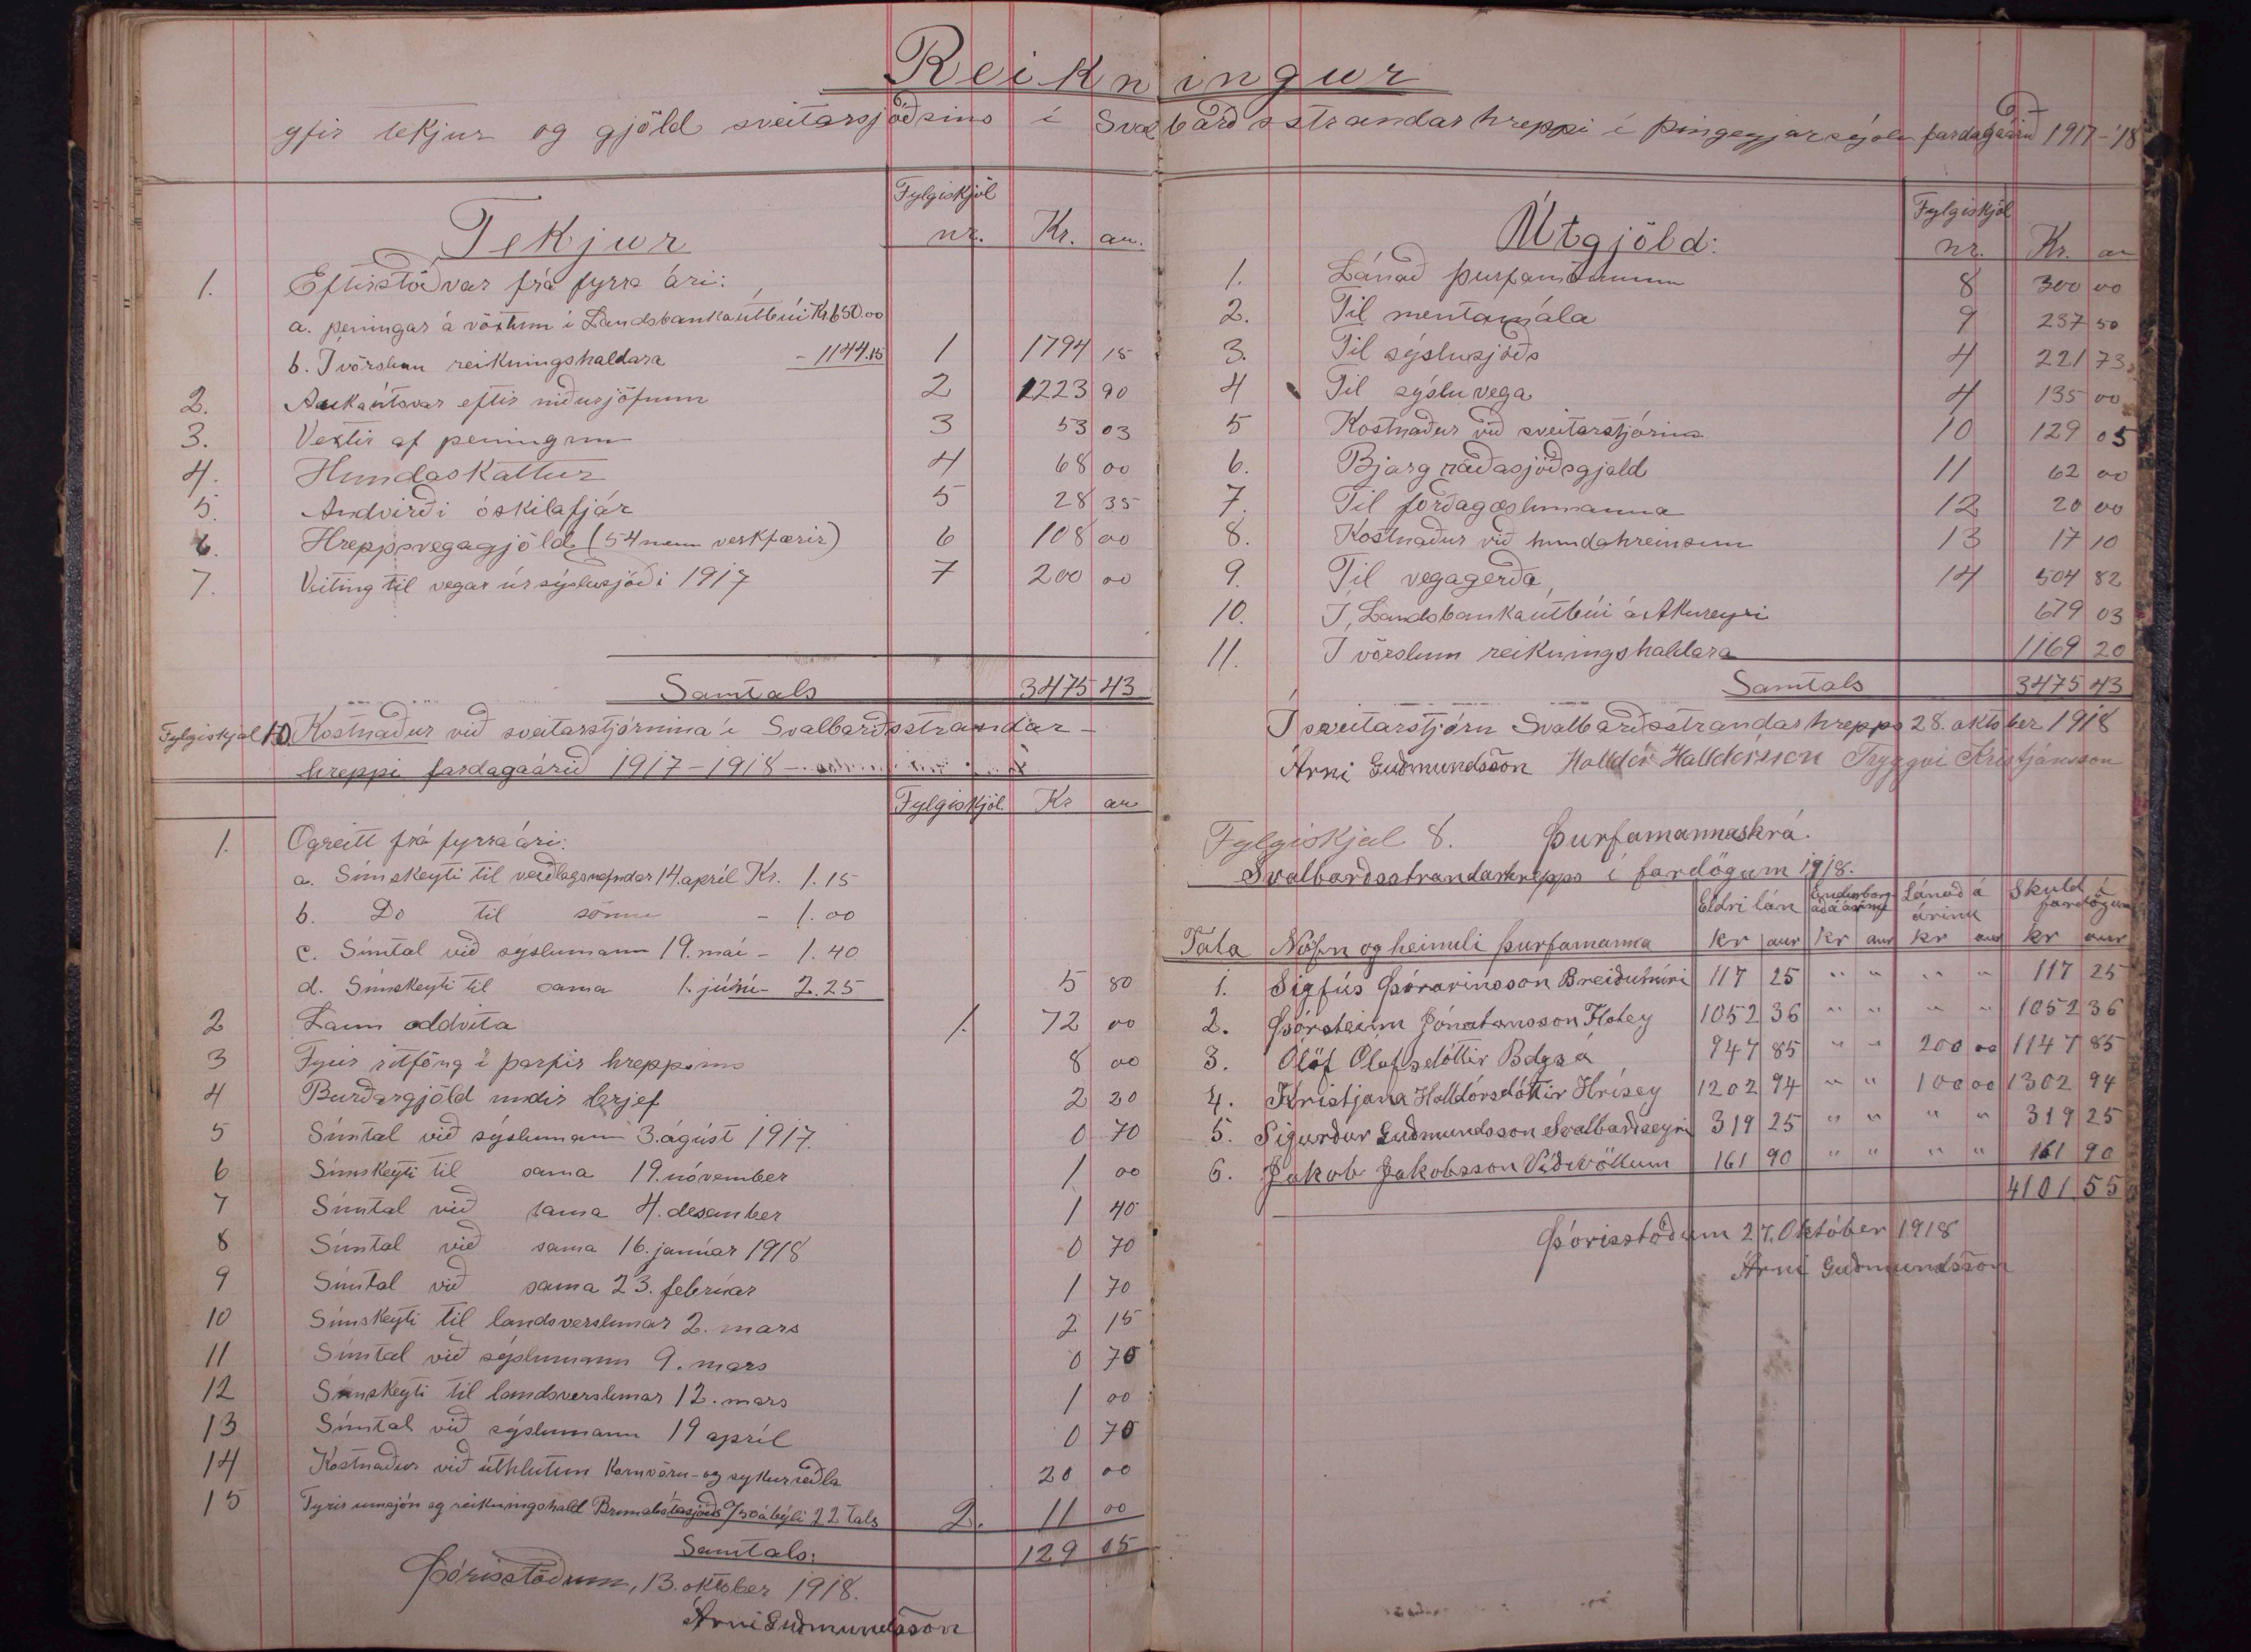 Reikningur
yfir tekjur og gjöld sveitarsjóðsins í Svalbarðsstrandarhreppi í Þingeyjarsýslu fardagaárið 1917-'18
Tekjur Fylgiskjöl nr. Kr. au.
1. Eftirstöðvar frá fyrra ári:
a. peningar á vöxtum í Landsbankaútbúi Kr. 650.00
b. Í vörslum reikningshaldara - 1144.15 1 1794 15
2. Aukaútsvar eftir niðurjöfnun 2 1223 90
3. Vextir af peningum 3 53 03
4. Hundaskattur 4 68 00
5. Andvirði óskilafjár 5 28 35
6. Hreppsvegagjöld (54 menn verkfærir) 6 108 00
7. Veiting til vegar úr sýslusjóði 1917 7 200 00
Samtals 3475 43
Fylgiskjal 10. Kostnaður við sveitarstjórnina í Svalbarðsstrandar-
hreppi fardagaárið 1917-1918
Fylgiskjöl Kr au
1. Ógreitt frá fyrra ári:
a. Símskeyti til verðlagsnefndar 14. apríl Kr. 1.15
b. Do til sömu - 1.00
c. Símtal við sýslumann 19. maí - 1.40
d. Símskeyti til sama 1. júní - 2.25 5 80
2 Laun oddvita 1. 72 00
3 Fyrir ritföng í þarfir hreppsins 8 00
4 Burðargjöld undir brjef 2 20
5 Símtal við sýslumann 3. ágúst 1917. 0 70
6 Símskeyti til sama 19. nóvember 1 00
7 Símtal við sama 4. desember 1 40
8 Símtal við sama 16. janúar 1918 0 70
9 Símtal við sama 23. febrúar 1 70
10 Símskeyti til landsverslunar 2. mars 2 15
11 Símtal við sýslumann 9. mars 0 70
12 Símskeyti til landsverslunar 12. mars 1 00
13 Símtal við sýslumann 19 apríl 0 70
14 Kostnaður við úthlutun kornvöru- og sykurseðla 20 00
15 Fyrir umsjón og reikningshald Brunabótasjóðs /50 á býli 22 tals 2. 11 00
Samtals: 129 05
Þórisstöðum, 13. október 1918.
Árni Guðmundsson
Útgjöld: Fylgiskjöl nr. Kr. au
1. Lánað þurfamönnum 8 300 00
2. Til mentamála 9 237 50
3. Til sýslusjóðs 4 221 73
4 Til sýsluvega 4 135 00
5 Kostnaður við sveitarstjórnina 10 129 05
6. Bjargráðasjóðsgjald 11 62 00
7. Til forðagæslumanna 12 20 00
8. Kostnaður við hundahreinsun 13 17 10
9. Til vegagerða 14 504 82
10. Í Landsbankaútbúi á Akureyri 679 03
11. Í vörslum reikningshaldara 1169 20
Samtals 3475 43
Í sveitarstjórn Svalbarðsstrandarhrepps 28. október 1918
Árni Guðmundsson Halldór Halldórsson Tryggvi Kristjánsson
Fylgiskjal 8. Þurfamannaskrá.
Svalbarðsstrandarhrepps í fardögum 1918.
Eldri lán Endurborgað á árinu Lánað á árinu Skuld í fardögum
Tala Nöfn og heimili þurfamanna kr aur kr aur kr aur kr aur
1. Sigfús Þórarinsson Breiðumýri 117 25 " " " " 117 25
2. Þorsteinn Jónatansson Flatey 1052 36 " " " " 1052 36
3. Ólöf Ólafsdóttir Bdgsá 947 85 " " 200 00 1147 85
4. Kristjana Halldórsdóttir Hrísey 1202 94 " " 100 00 1302 94
5. Sigurður Guðmundsson Svalbarðseyri 319 25 " " " " 319 25
6. Jakob Jakobsson Víðivöllum 161 90 " " " " 161 90
4101 55
Þórisstöðum 27. Október 1918
Árni Guðmundsson